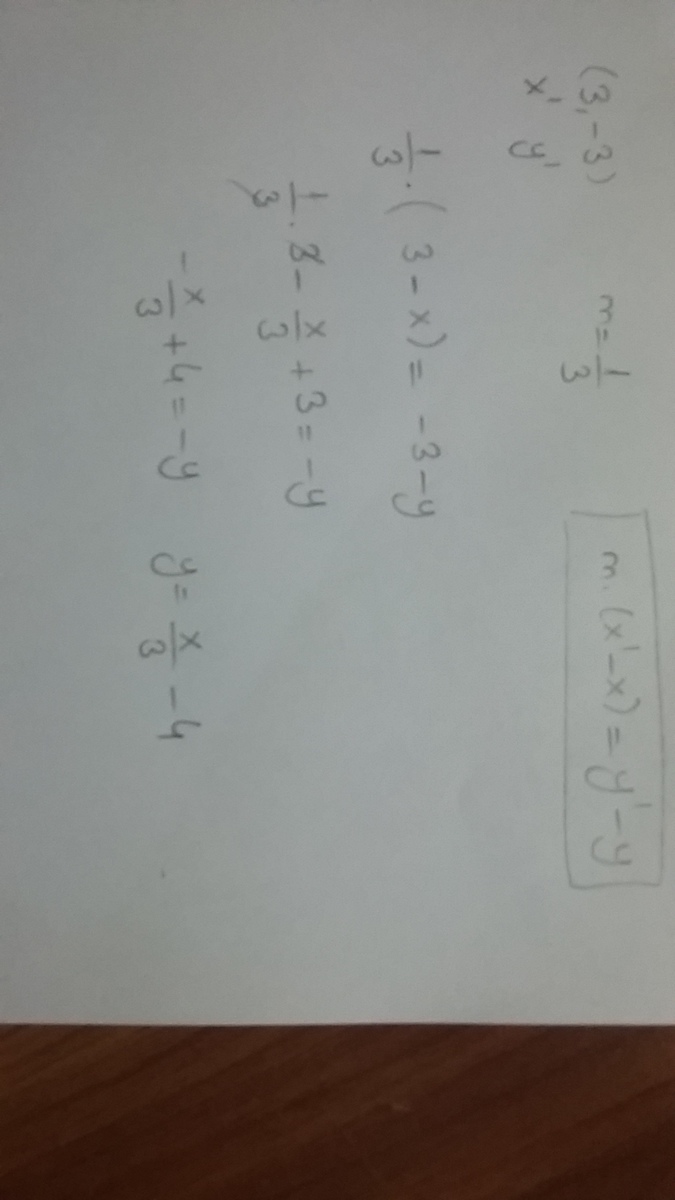 (3,-3) m=1/3 m.(x'-x)=y'-y
x' y'
1/3.(3-x)=-3-y
1/3.3-x/3+3=-y
-x/3+4=-y y=x/3-4